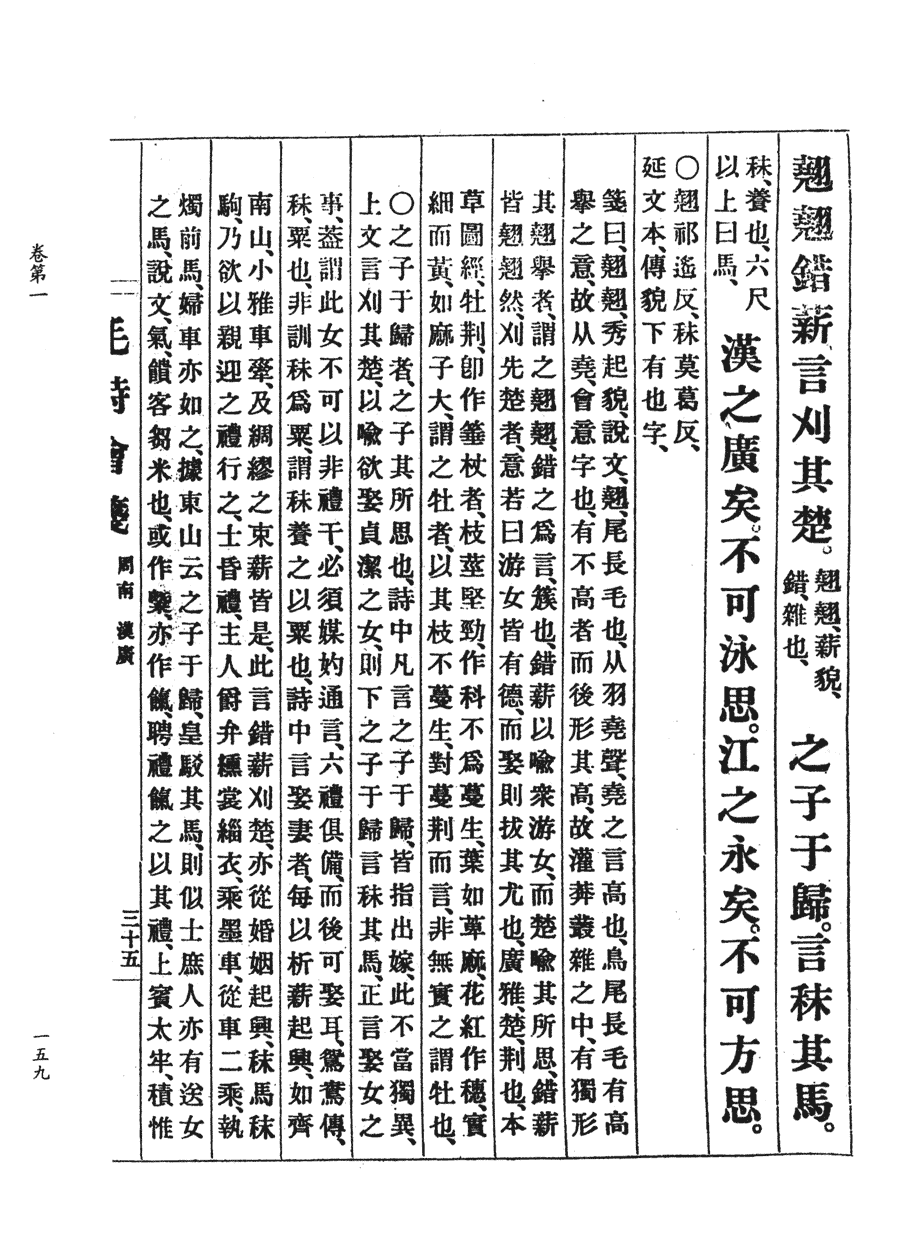 翹翹錯薪言刈其楚。翹翹、薪貌、
錯、雜也、
之子于歸。言秣其馬。
秣、養也、六尺
以上曰馬、
漢之廣矣。不可泳思。江之永矣。不可方思。
〇翹祁遙反、秣莫葛反、
延文本、傳貌下有也字、
箋曰、翹翹、秀起貌、說文、翹、尾長毛也、从羽堯聲、堯之言高也、鳥尾長毛有高
舉之意、故从堯、會意字也、有不高者而後形其高、故灌莽叢雜之中、有獨形
其翹舉者、謂之翹翹、錯之爲言、簇也、錯薪以喩衆游女、而楚喩其所思、錯薪
皆翹翹然、刈先楚者、意若曰游女皆有德、而娶則拔其尤也、廣雅、楚、荆也、本
草圖經、牡荆、卽作箠杖者、枝莖堅勁、作科不爲蔓生、葉如萆麻、花紅作穗、實
細而黃、如麻子大、謂之牡者、以其枝不蔓生、對蔓荆而言、非無實之謂牡也、
〇之子于歸者、之子其所思也、詩中凡言之子于歸、皆指出嫁、此不當獨異、
上文言刈其楚、以喩欲娶貞潔之女、則下之子于歸言秣其馬、正言娶女之
事、葢謂此女不可以非禮干、必須媒妁通言、六禮俱備、而後可娶耳、鴛鴦傳、
秣、粟也、非訓秣爲粟、謂秣養之以粟也、詩中言娶妻者、每以析薪起興、如齊
南山、小雅車舝、及綢繆之束薪皆是、此言錯薪刈楚、亦從婚姻起興、秣馬秣
駒、乃欲以親迎之禮行之、士昏禮、主人爵弁纁裳緇衣、乘墨車、從車二乘、執
燭前馬、婦車亦如之、據東山云之子于歸、皇駁其馬、則似士庶人亦有送女
之馬、說文、氣、饋客芻米也、或作槩、亦作餼、聘禮餼之以其禮、上賓太牢、積惟
毛詩會箋 周南 漢廣
三十五
卷第一
一五九